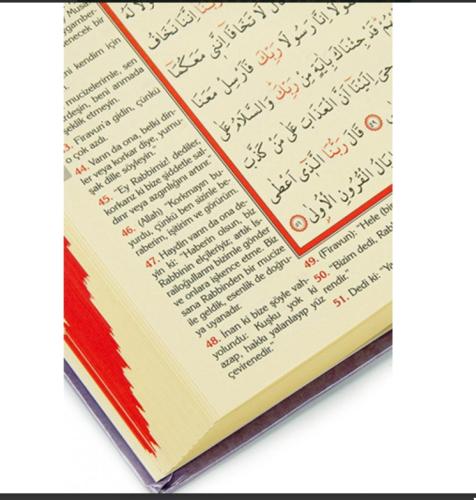 Musa
ygamber-
enecek bir
ni kendim için
mucizelerimle, sen
rdeşin, beni anmada
şeklik etmeyin.
43. Firavun'a gidin, çünkü
o çok azdı.
44. Varın da ona, belki din-
ler veya korkar diye, yumu-
şak dille söyleyin."
45. "Ey Rabbimiz! dediler,
korkarız ki bize şiddetle sal-
dırır veya azgınlığını artırır."
46. (Allah) "Korkmayın bu-
yurdu, çünkü ben sizinle be-
raberim, işitirim ve görürüm.
47. Haydin varın da ona de-
yin ki: "Haberin olsun, biz
Rabbinin elçileriyiz; artık İs-
railoğullarını bizimle gönder
ve onlara işkence etme. Biz
sana Rabbinden bir mucize
ile geldik, esenlik de doğru-
ya uyanadır.
48. İnan ki bize şöyle vah-
yolundu: Kuşku yok ki
azap, hakkı yalanlayıp yüz
çevirenedir."
49. (Firavun): "Hele (bi
50. "Bizim dedi, Rab
rendir."
51. Dedi ki: "Ya
إِنَّنَا نَخَافُ
لَا تَخَافَا إِنَّنِي مَعَكُمَا
رَسُولَا رَبِّكَ فَأَرْسِلْ مَعَنَا
قَدْ جِئْنَاكَ بِآيَةٍ مِنْ رَبِّكَ وَالسَّلَامُ عَلَى
إِلَيْنَا أَنَّ الْعَذَابَ عَلَى مَنْ كَذَّبَ
٤٩ قَالَ رَبُّنَا الَّذِي أَعْطَى
بَالُ الْقُرُونِ الْأُولَى ٥١